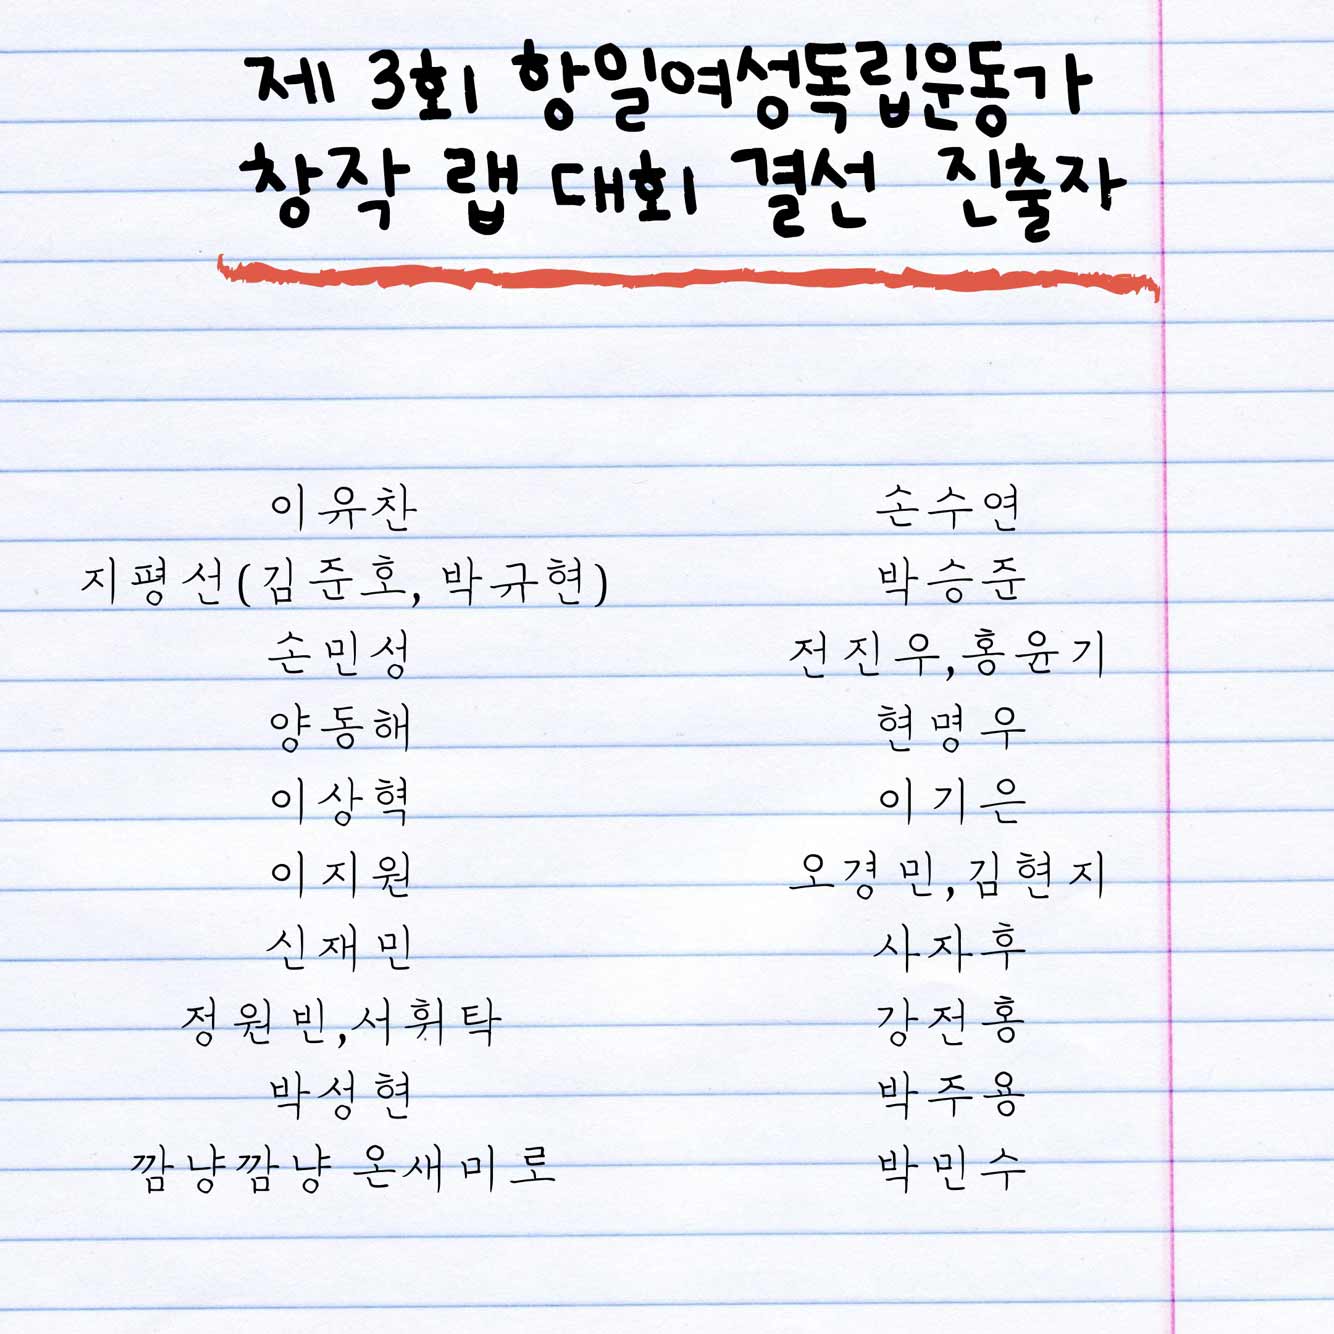 제 3회 항일여성독립운동가
창작 랩 대회 결선 진출자
이유찬
지평선(김준호, 박규현)
손민성
양동해
이상혁
이지원
신재민
정원빈,서휘탁
박성현
깜냥깜냥 온새미로
손수연
박승준
전진우,홍윤기
현명우
이기은
오경민,김현지
사자후
강전홍
박주용
박민수